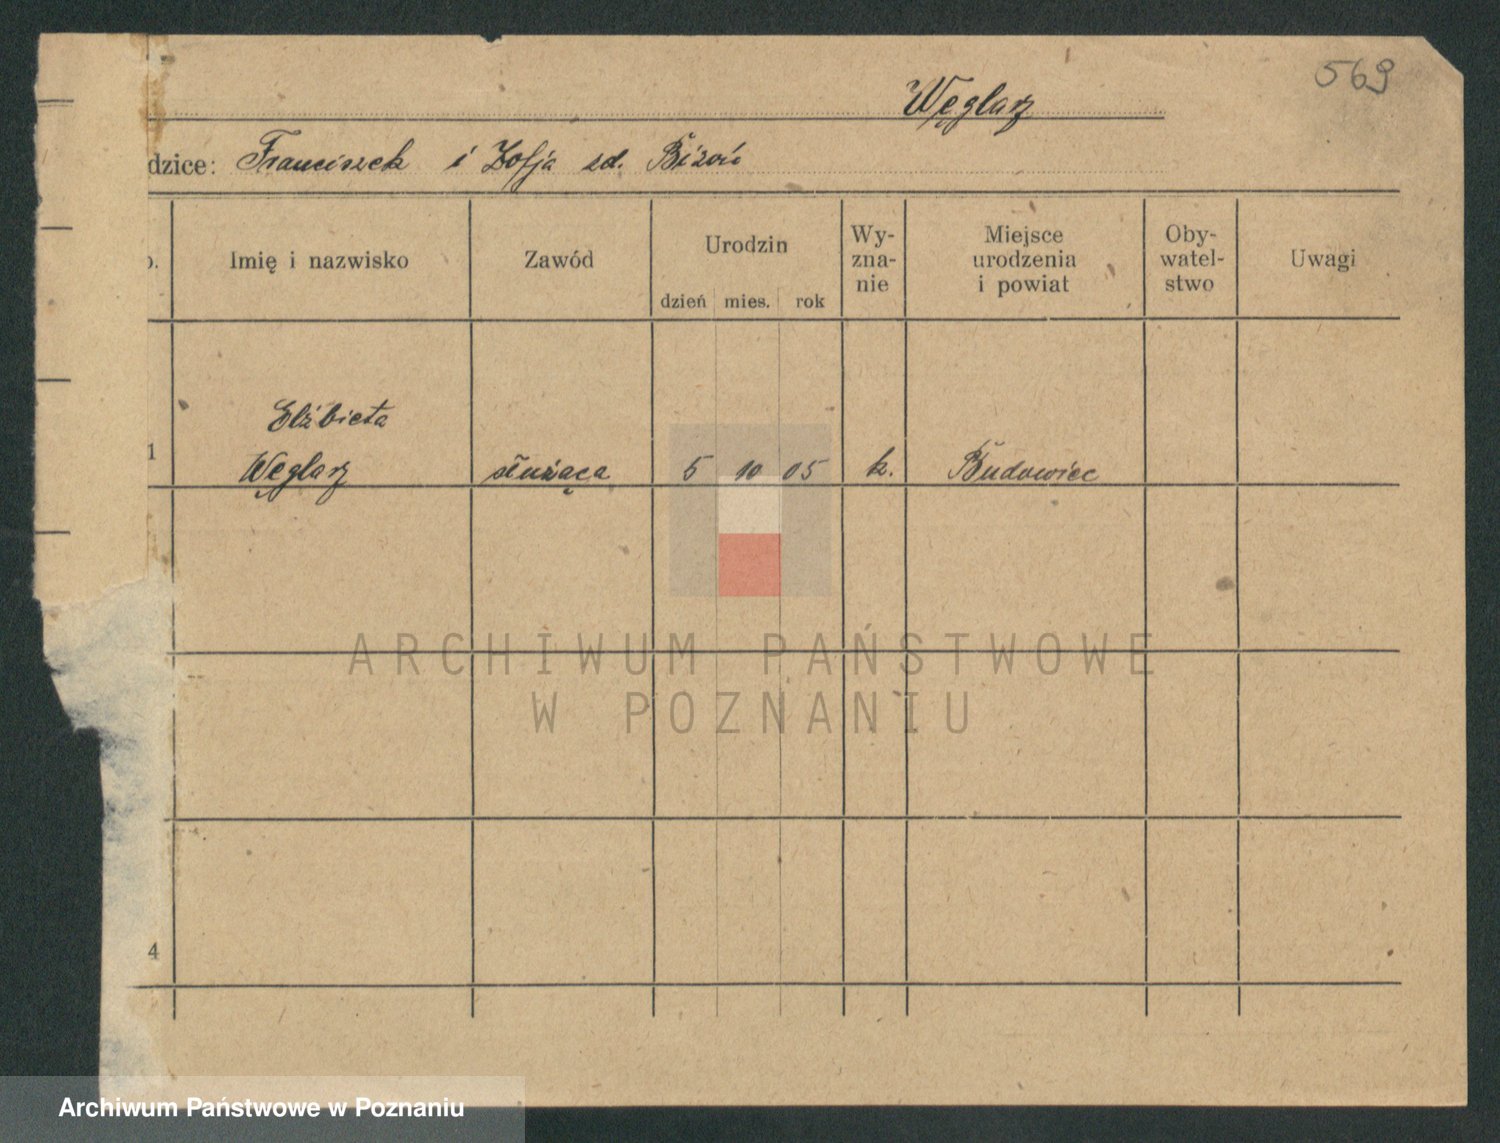 569
Węglarz
dzice: Franciszek i Zofja zd.
o. Imię i nazwisko Zawód Urodzin dzień mies. rok Wy-znanie Miejsce urodzenia i powiat Oby-watel-stwo Uwagi
Elżbieta
1 Węglarz służąca 5 10 05 k. Budowiec
4
ARCHIWUM PAŃSTWOWE
W POZNANIU
Archiwum Państwowe w Poznaniu